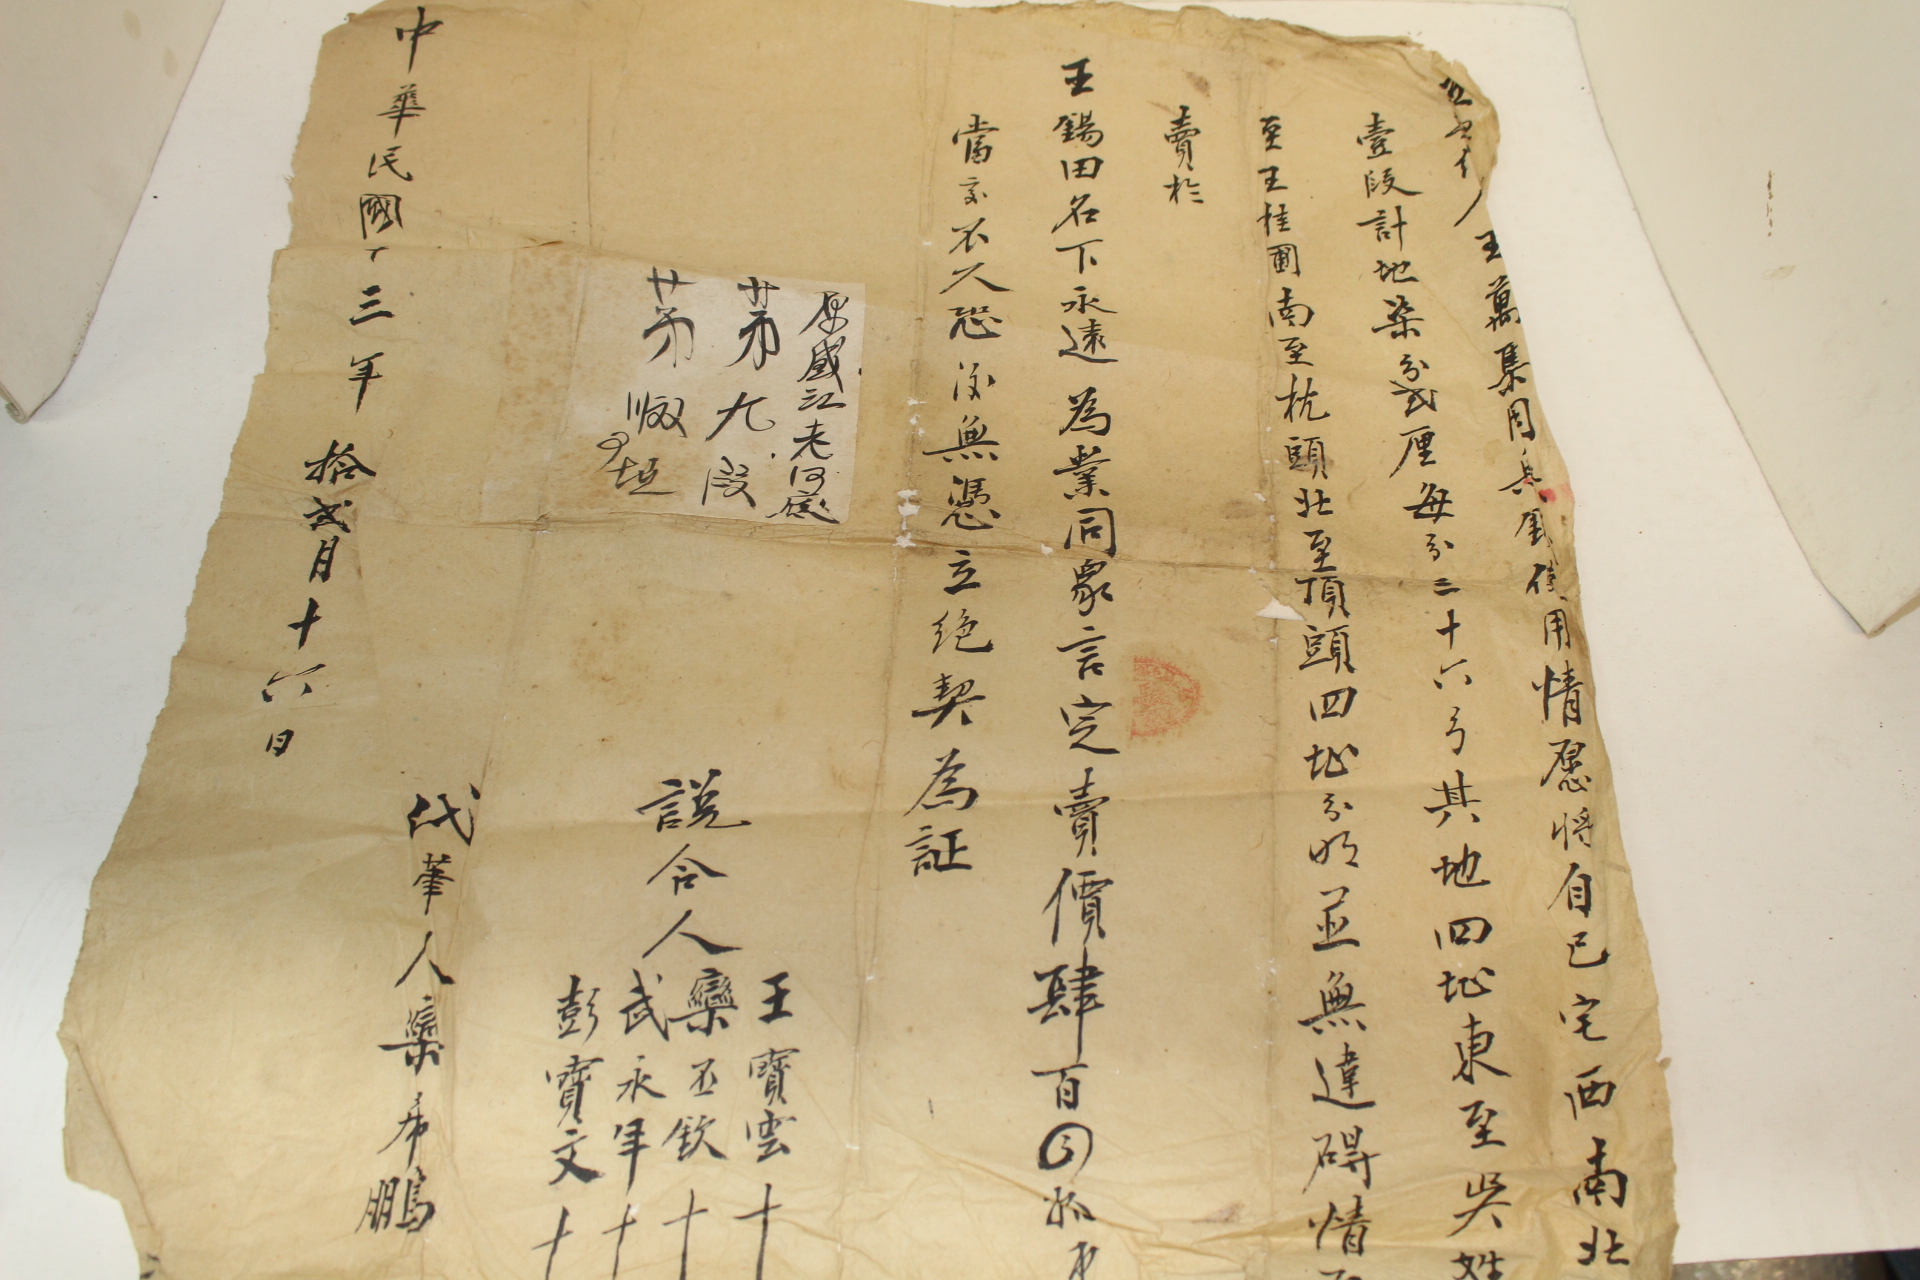 王萬集因無錢使用情愿將自己宅西南北
壹段計地柒分貳厘每分三十六弓其地四址東至吳姓
至王桂圃南至枕頭北至頂頭四址分明並無違碍情
賣於
王錫田名下永遠為業同衆言定賣價肆百
當交不欠恐後無憑立絶契為証
第九段
說合人
王寶雲十
欒丕欽十
武永年十
彭寶文十
代筆人欒希鵬
中華民國十三年拾貳月十六日